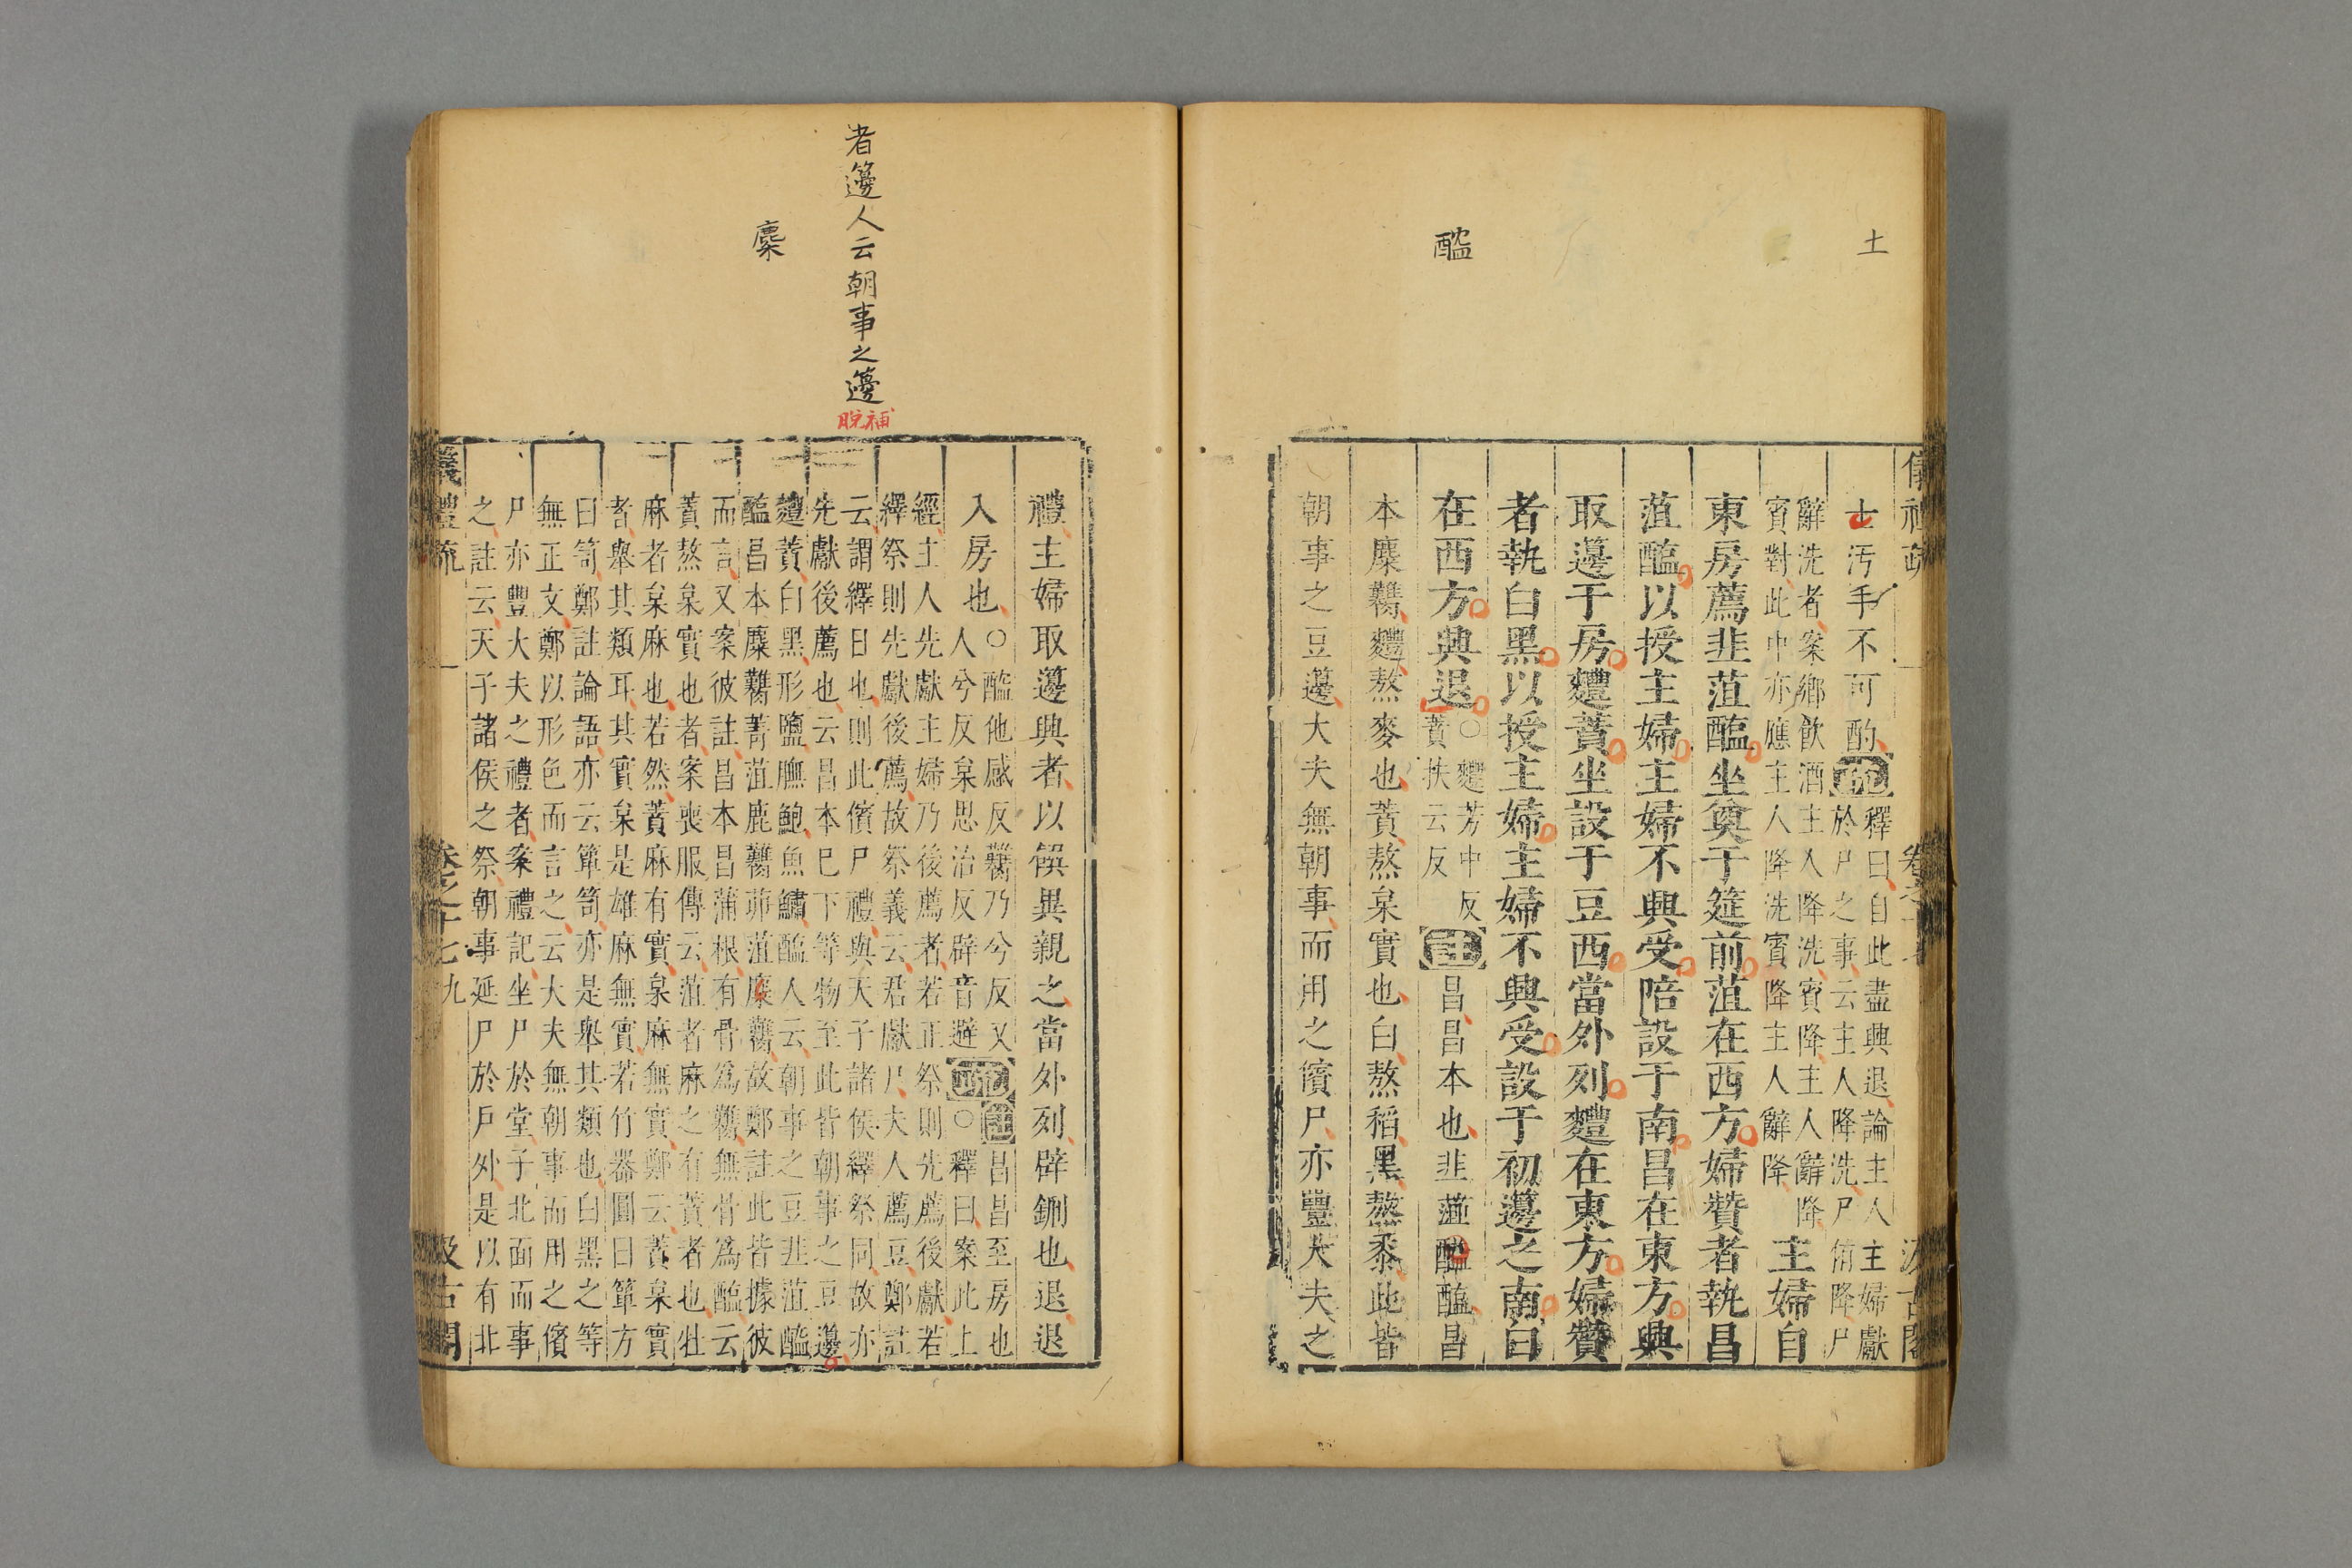 土
醓
儀禮疏 卷之十七 汲古閣
士汚手不可酌疏釋曰自此盡興退論主人主婦獻
於尸之事云主人降洗尸侑降尸
辭洗者案鄉飲酒主人降洗賓降主人辭降
賓對此中亦應主人降洗賓降主人辭降主婦自
東房薦韭菹醓坐奠于筵前菹在西方婦贊者執昌
菹醓以授主婦主婦不興受陪設于南昌在東方興
取籩于房麷蕡坐設于豆西當外列麷在東方婦贊
者執白黑以授主婦主婦不興受設于初籩之南白
在西方興退○麷芳中反
蕡扶云反註昌昌本也韭菹醓醢昌
本麋臡麷熬麥也蕡熬枲實也白熬稻黑熬黍此皆
朝事之豆籩大夫無朝事而用之儐尸亦豐大夫之
者籩人云朝事之籩
補脫
麋
禮主婦取籩興者以饌異親之當外列辟鉶也退退
入房也○醓他感反臡乃兮反又
人兮反枲思治反辟音避疏註昌昌至房也
○釋曰案此上
經主人先獻主婦乃後薦者若正祭則先薦後獻若
繹祭則先獻後薦故祭義云君獻尸夫人薦豆鄭註
云謂繹日也則此儐尸禮與天子諸侯繹祭同故亦
先獻後薦也云昌本已下等物至此皆朝事之豆籩
麷蕡白黑形鹽膴鮑魚鱐醢人云朝事之豆韭菹醓
醢昌本麋臡菁菹鹿臡茆菹麋臡故鄭註此皆據彼
而言又案彼註昌本昌蒲根有骨爲臡無骨爲醢云
蕡熬枲實也者案喪服傳云菹者麻之有蕡者也牡
麻者枲麻也若然蕡麻有實枲麻無實鄭云蕡枲實
者舉其類耳其實枲是雄麻無實若竹器圓曰簞方
曰笥鄭註論語亦云簞笥亦是舉其類也白黑之等
無正文鄭以形色而言之云大夫無朝事而用之儐
尸亦豐大夫之禮者案禮記坐尸於堂子北面而事
之註云天子諸侯之祭朝事延尸於戶外是以有北
儀禮疏 卷之十七 九 汲古閣